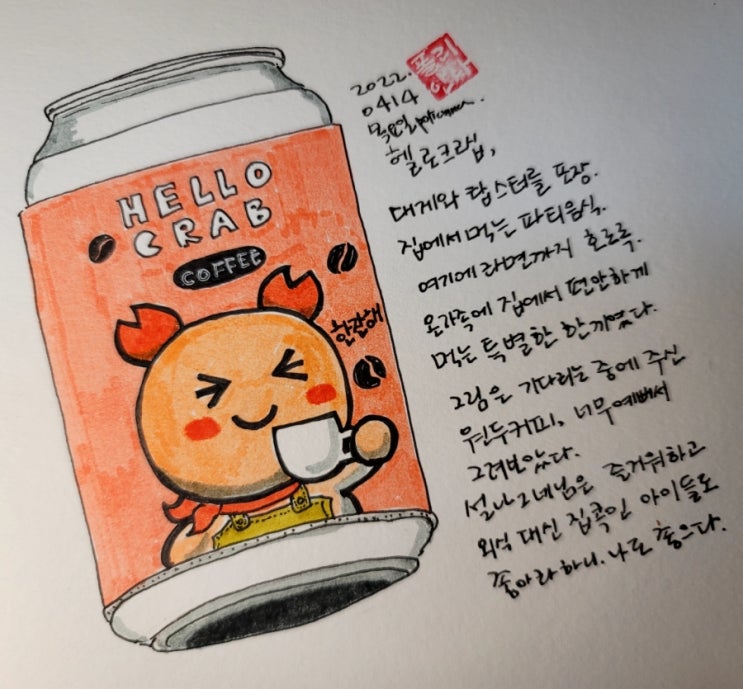 HELLO
CRAB
COFFEE
한잔해
2022.
0414
목요일
헬로크랩,
대게와 랍스터를 포장.
집에서 먹는 파티음식.
여기에 라면까지 호로록.
온가족에 집에서 편안하게
먹는 특별한 한끼였다.
그림은 기다리는 중에 주신
원두커피, 너무예뻐서
그려보았다.
설나그네님은 즐거워하고
외식 대신 집콕인 아이들도
좋아라하니. 나도 좋으다.